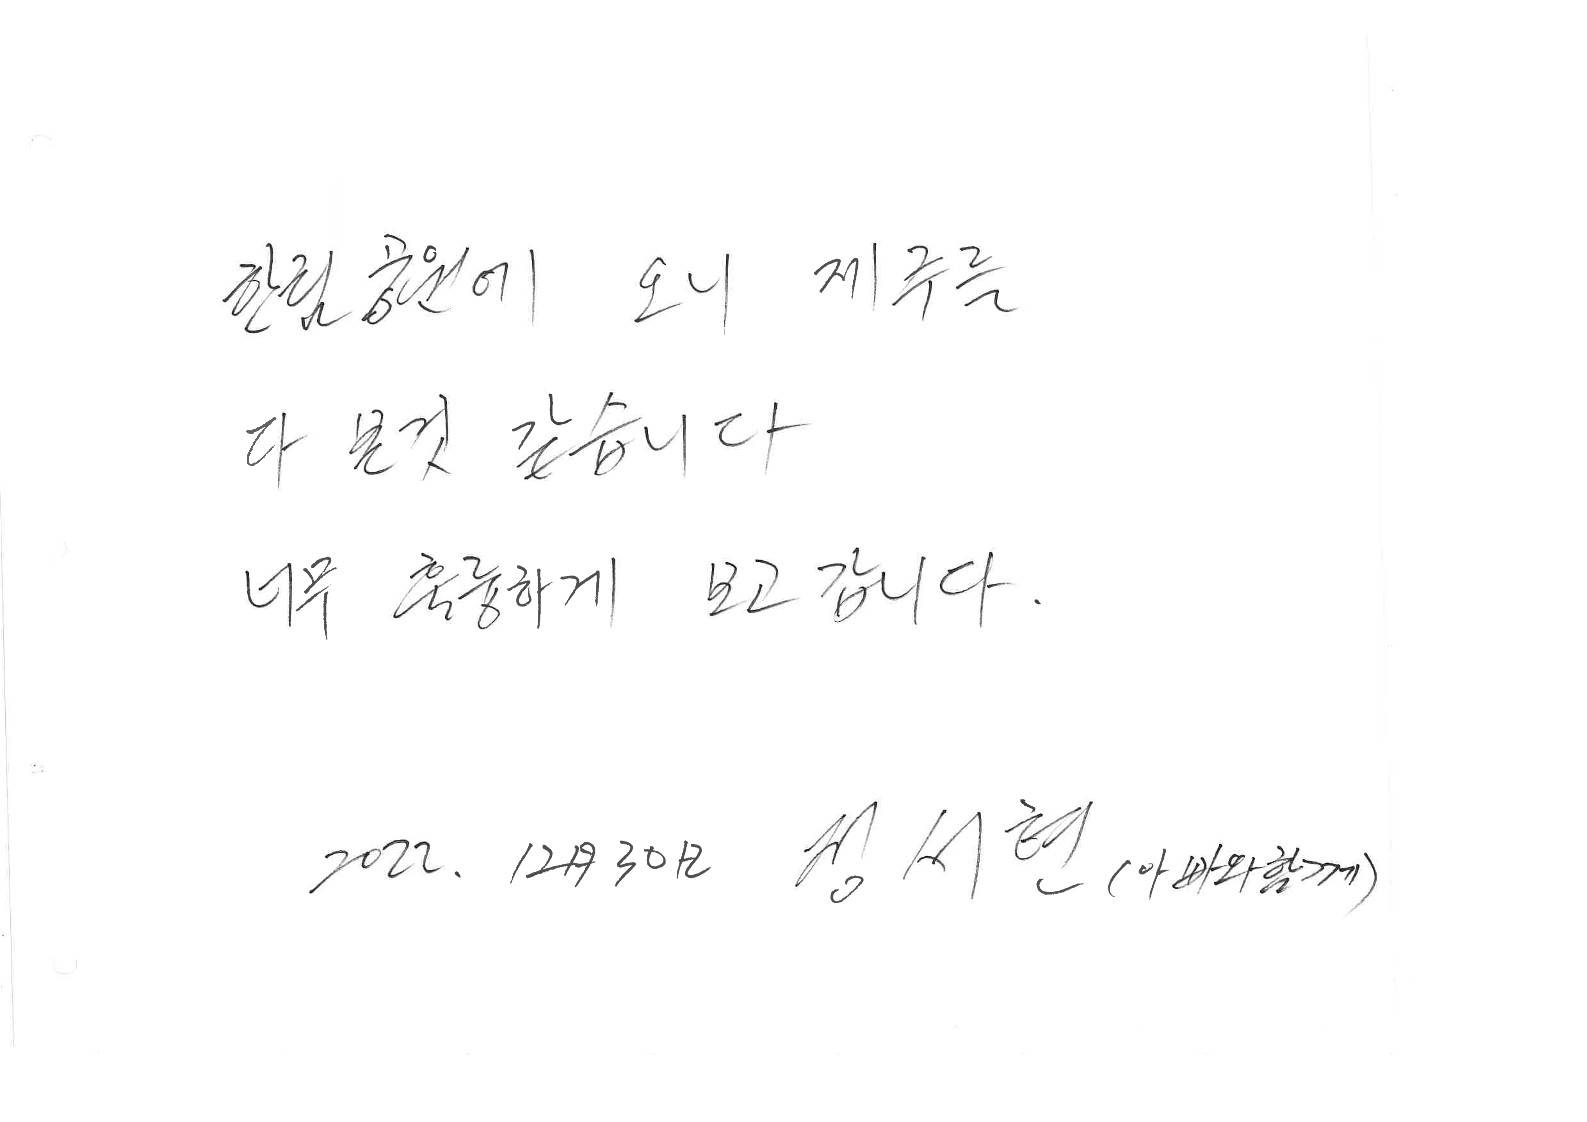 한림공원에 오니 제주를
다 본것 같습니다
너무 훅륭하게 보고 갑니다.
2022. 12月 30日 정서현 (아빠와함께)